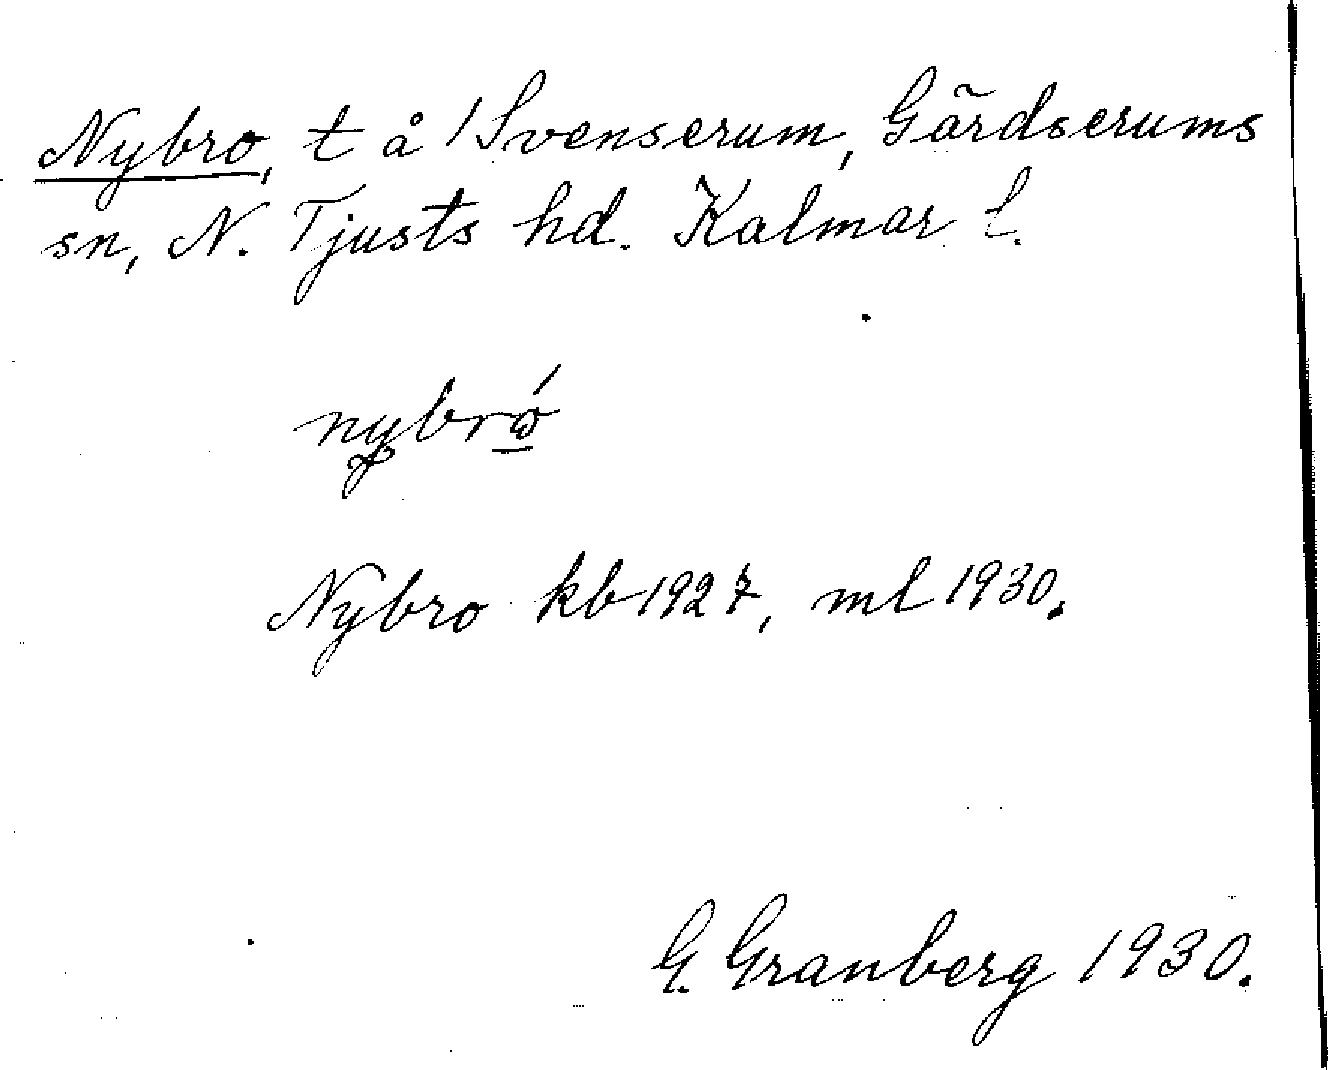 Nybro, t å 1 Svenserum, Gärdserums
sn, N. Tjusts hd. Kalmar l.
nybró
Nybro kb 1927, ml 1930.
G. Granberg 1930.